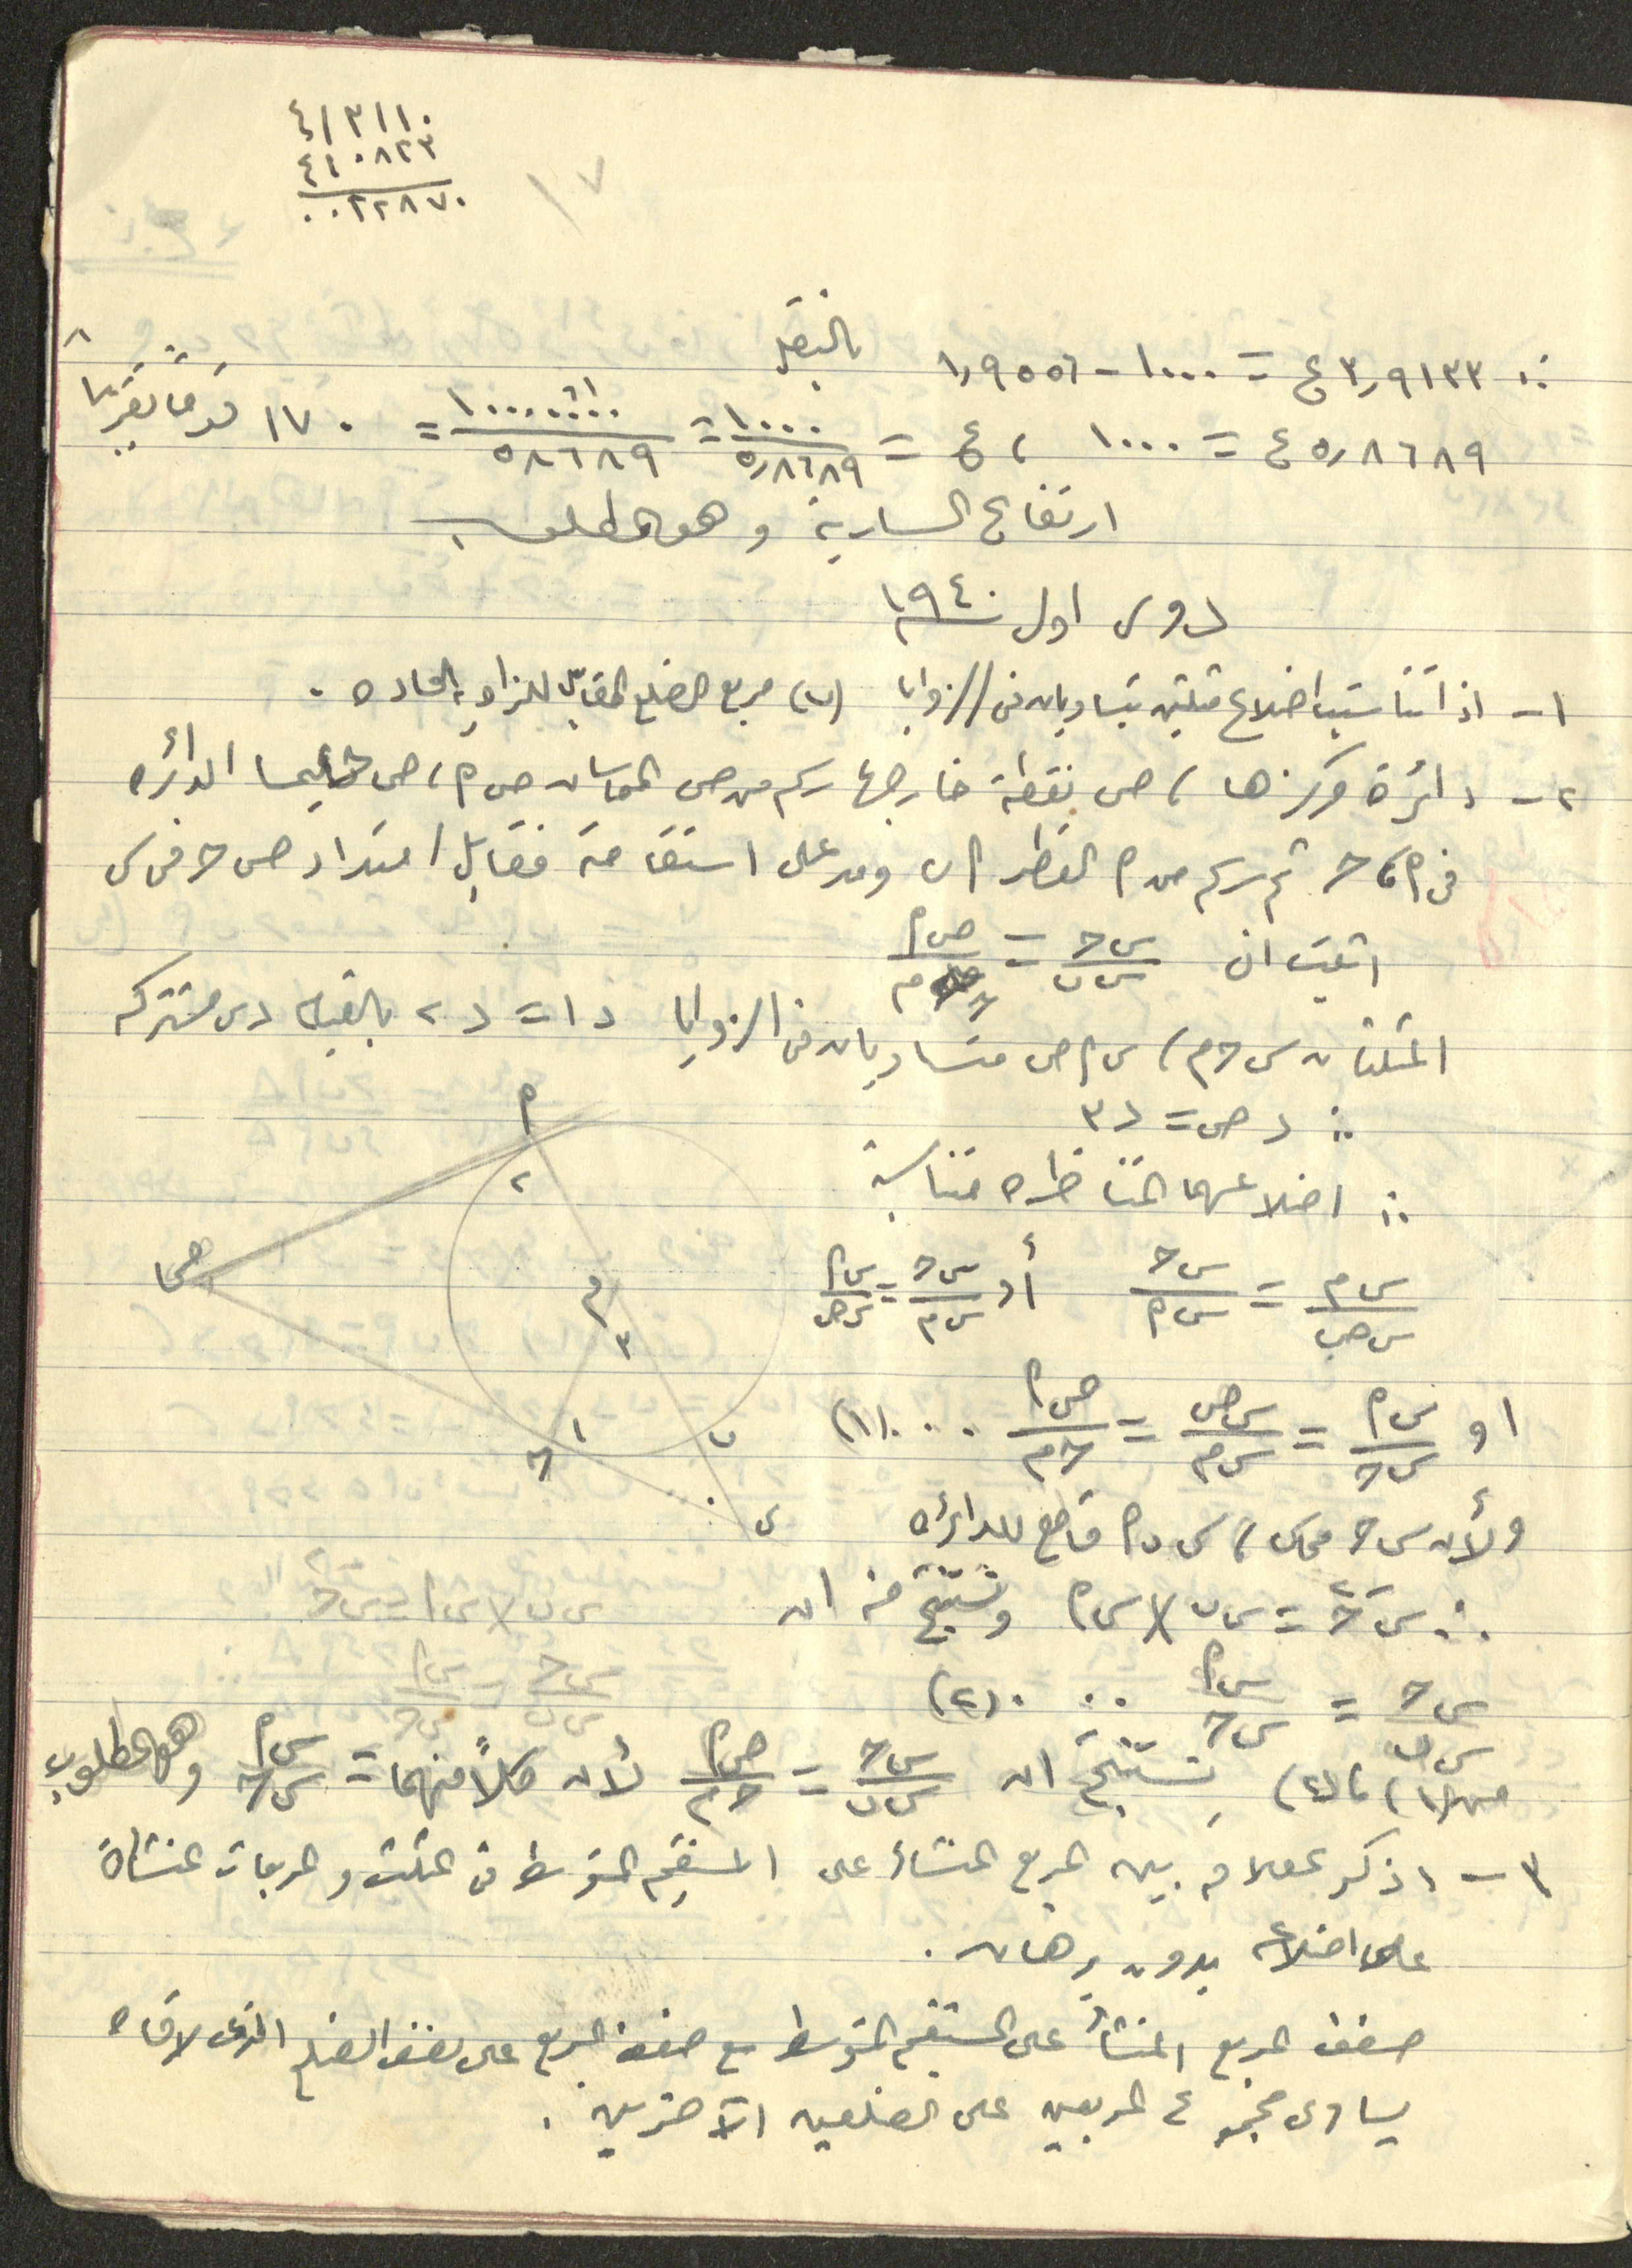 ٤١٣١١٠
٤١٠٨٢٣
٠٠٢٢٨٧٠
١٧
∴ ٣٫٩١٣٣ ع = ١٠٠٠ - ١٫٩٥٥٦ بالنقل
٥٫٨٦٨٩ ع = ١٠٠٠ ، ع = ١٠٠٠ / ٥٫٨٦٨٩ = ١٠٠٠٠٠٠٠ / ٥٨٦٨٩ = ١٧٠ قدماً تقريباً
ارتفاع السارية وهو المطلوب
دور اول ١٩٤٠
١ - اذا تناسبت اضلاع مثلثين يتساويان في الزوايا (ب) مربع الضلع المقابل للزاوية الحاده .
٢ - دائرة مركزها م، ص نقطة خارجها رسم من ص المماسان ص م، ص ح ليمسا الدائره
في م، ح ثم رسم من م القطر م ب ومد على استقامة فقابل امتداد ص ح في س
اثبت ان س ح / س ب = ص م / ح م
المثلثان س ح م، س م ص متساويان في الزوايا د ١ = د ٢ بالقياس د س مشتركه
∴ د ص = د ٣
∴ اضلاعهما المتناظره متناسبة
س م / س ص = س ح / س م أو س ح / س م = س م / س ص
او س م / س ح = س ص / س م = ص م / ح م ... (١)
ولأن س ح مماس، س ب م قاطع للدائره
∴ س ح² = س ب × س م ونستنتج منه ان
س ح / س ب = س م / س ح ... (٢)
من (١)، (٢) نستنتج ان س ح / س ب = ص م / ح م لأن كلاً منهما = س م / س ح وهو المطلوب
م
٢
ص
م
٣
١
ح
ب
س
س ب × س م = س ح²
س ح / س ب = س م / س ح
٣ - اذكر العلاقه بين المربع المنشأ على المستقيم المتوسط في المثلث والمربعات المنشأة
على اضلاعه بدون برهان .
ضعف المربع المنشأ على المستقيم المتوسط مع ضعف المربع على نصف الضلع الذى لاقاه
يساوى مجموع المربعين على الضلعين الآخرين .